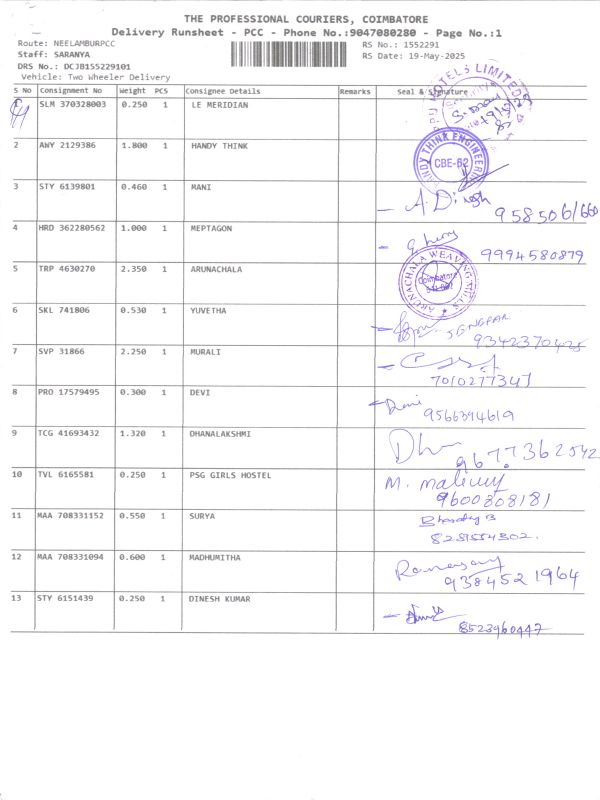 THE PROFESSIONAL COURIERS, COIMBATORE
Delivery Runsheet - PCC - Phone No.:9047080280 - Page No.:1
Route: NEELAMBURPCC
Staff: SARANYA
DRS No.: DCJB155229101
Vehicle: Two Wheeler Delivery
RS No.: 1552291
RS Date: 19-May-2025
S No Consignment No Weight PCS Consignee Details Remarks Seal & Signature
1 SLM 370328003 0.250 1 LE MERIDIAN
HOTELS LIMITED
2 AWY 2129386 1.800 1 HANDY THINK
HANDY THINK ENGINEERING
CBE-62
3 STY 6139801 0.460 1 MANI
4 HRD 362280562 1.000 1 MEPTAGON
9994580879
5 TRP 4630270 2.350 1 ARUNACHALA
ARUNACHALA WEAVING MILLS
Coimbatore
6 SKL 741806 0.530 1 YUVETHA
9342370428
7 SVP 31866 2.250 1 MURALI
7010277347
8 PRO 17579495 0.300 1 DEVI
9566394619
9 TCG 41693432 1.320 1 DHANALAKSHMI
9677362542
10 TVL 6165581 0.250 1 PSG GIRLS HOSTEL
9600808181
11 MAA 708331152 0.550 1 SURYA
8281554302.
12 MAA 708331094 0.600 1 MADHUMITHA
9384521964
13 STY 6151439 0.250 1 DINESH KUMAR
8523960447